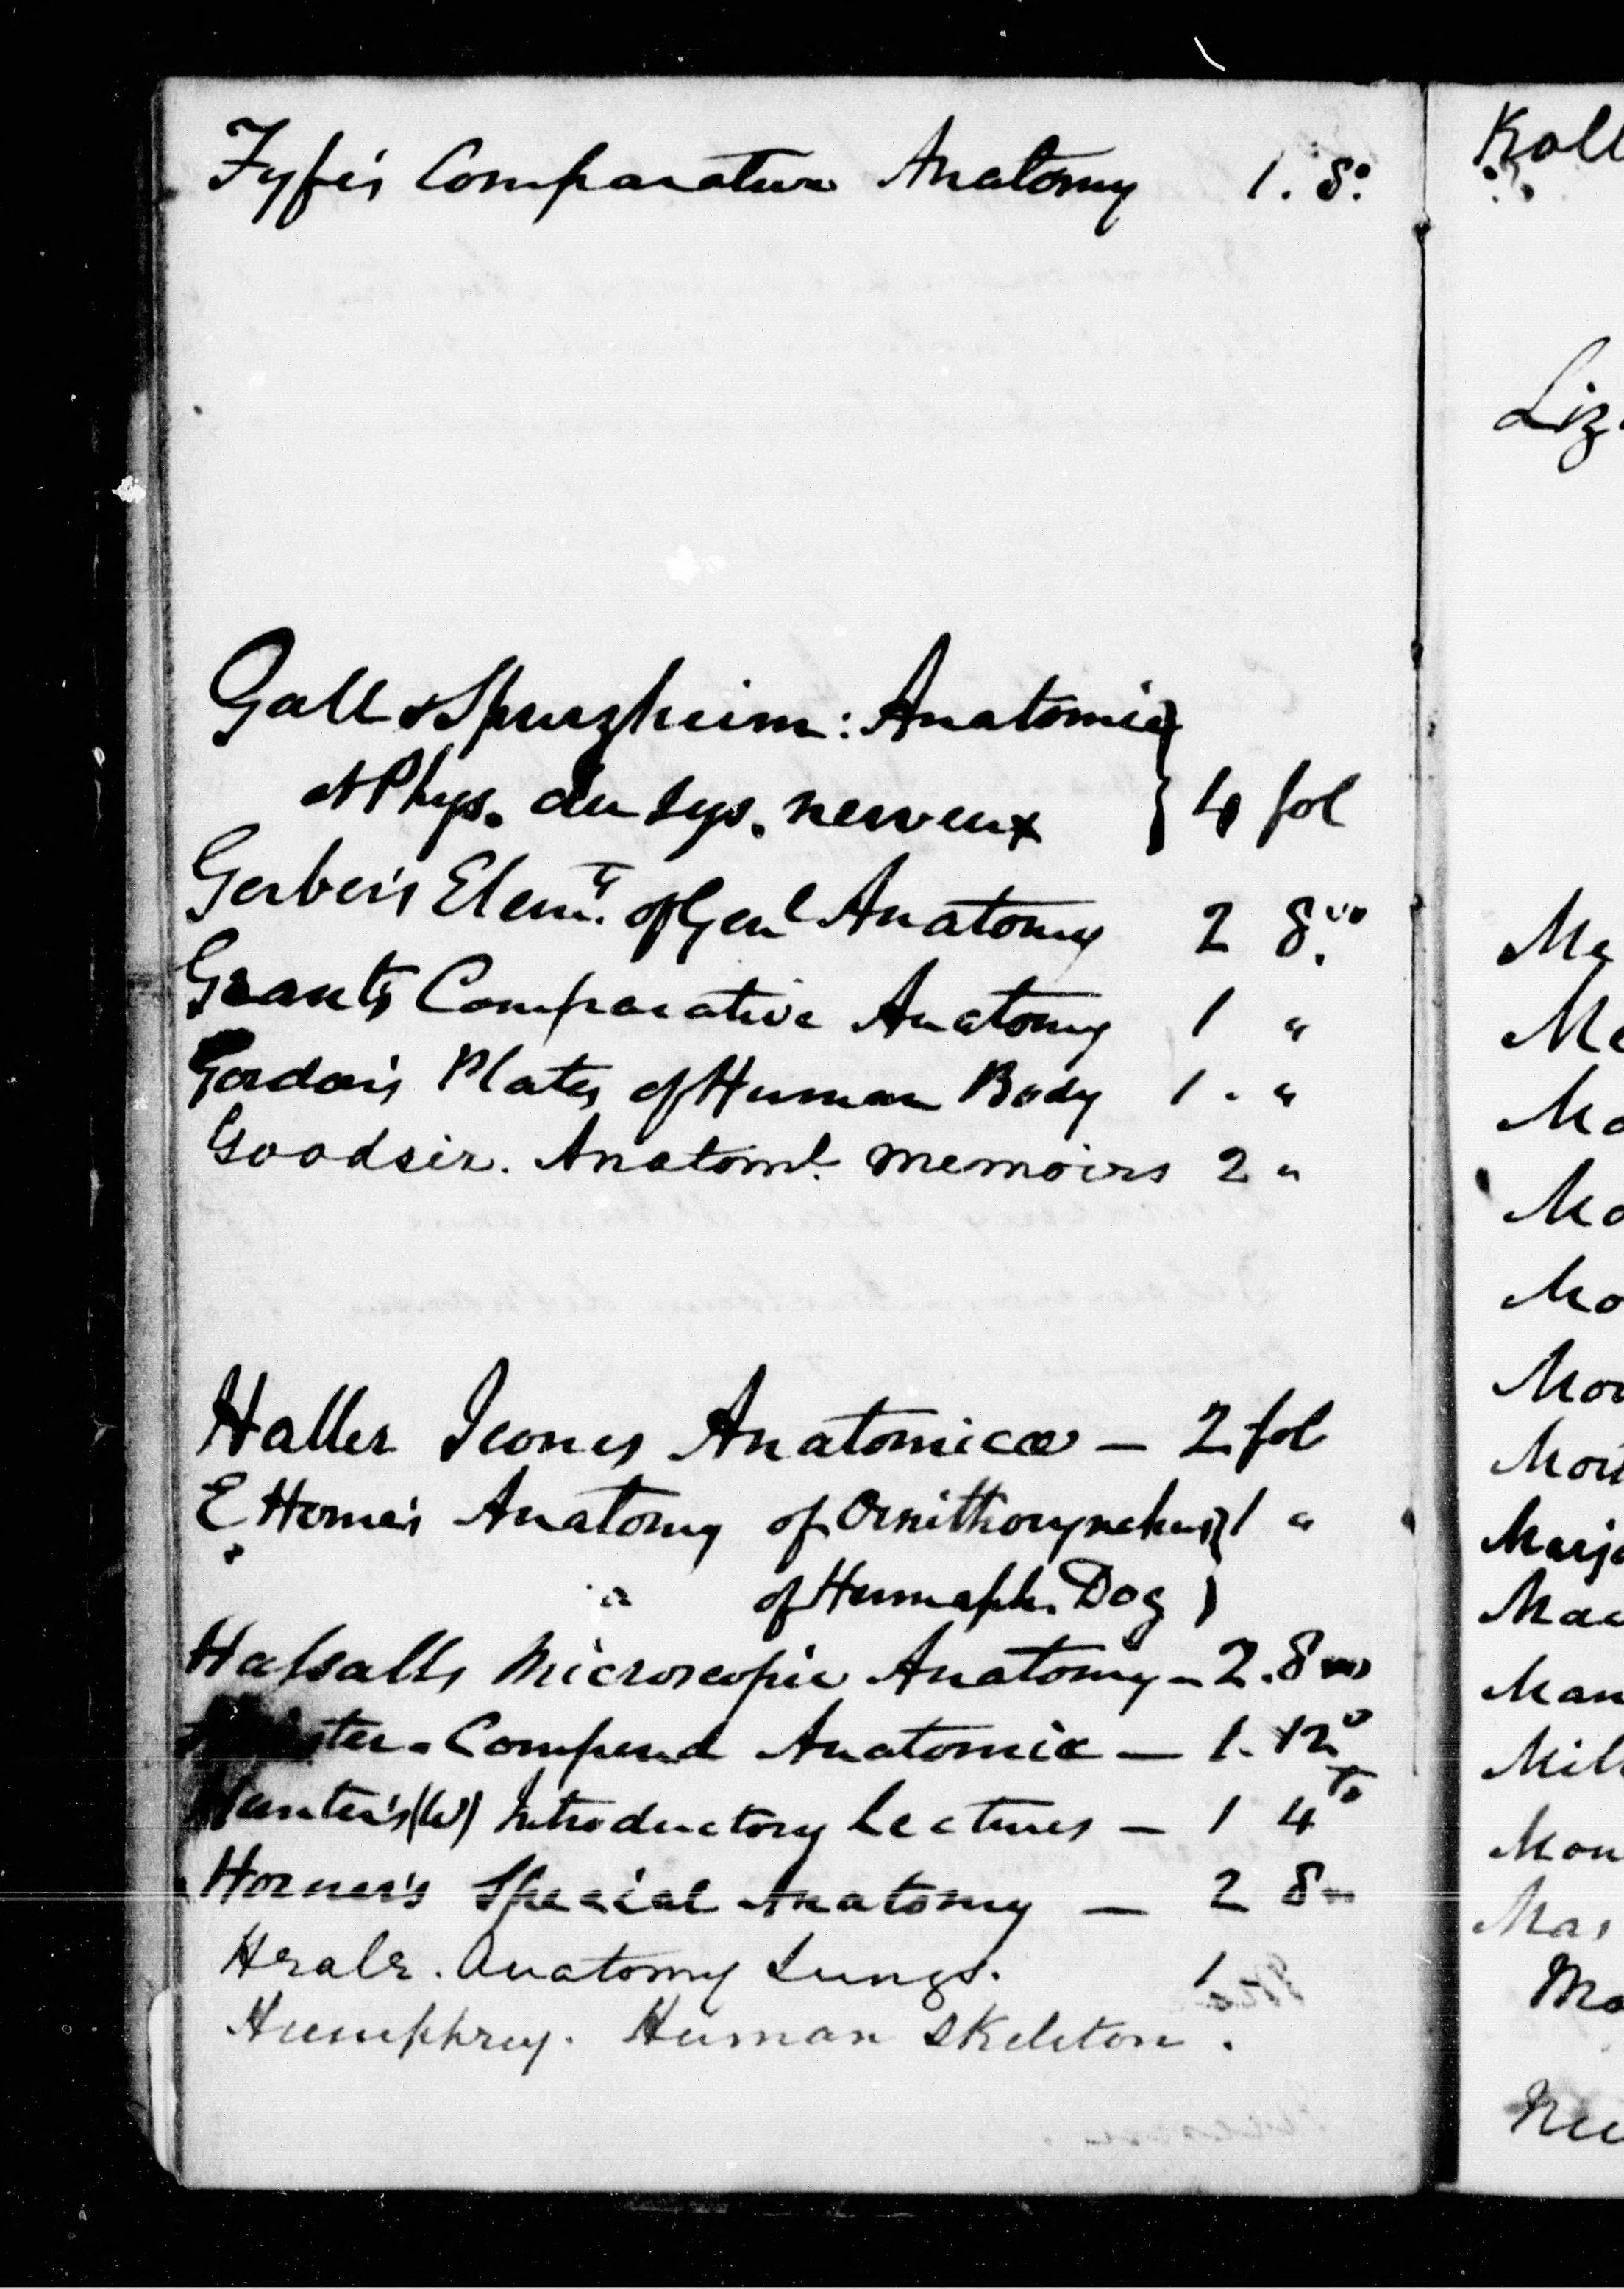 Fyfe's Comparative Anatomy 1. 8o.
Gall & Spurzheim: Anatomie
et Phys. du sys. nerveux } 4 fol
Gerber's Elemts. of Genl Anatomy 2 8.vo
Grant's Comparative Anatomy 1 "
Gordon's Plates of Human Body 1 . "
Goodsir. Anatoml. Memoirs 2 "
Haller Icones Anatomicæ — 2 fol
E Home's Anatomy of Ornithorynchus } 1 "
" of Hermaph. Dog }
Halsalls Microscopic Anatomy — 2. 8vo
Compend Anatomic — 1. 12o
Hunter's (W) Introductory Lectures — 1 4to
Horner's Special Anatomy — 2 8vo
Anatomy Lungs. 1
Humphrey. Human Skeleton.
Koll
Liz
Me
Me
Mo
Mo
Mo
Mon
Mon
Marjo
Mac
Man
Mil
Mon
Mas
Mo